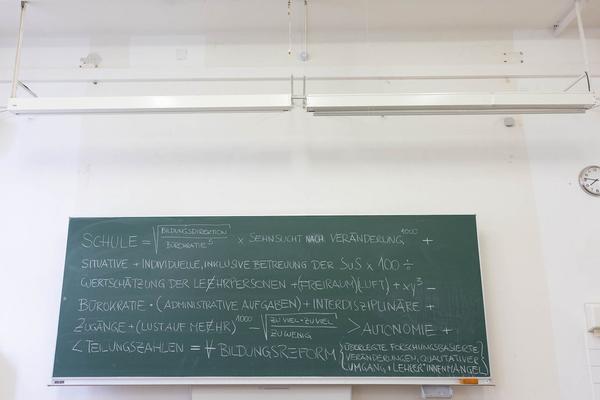 SCHULE = √BILDUNGSDIREKTION / BÜROKRATIE⁵ × SEHNSUCHT NACH VERÄNDERUNG¹⁰⁰⁰ +
SITUATIVE + INDIVIDUELLE, INKLUSIVE BETREUUNG DER SuS × 100 ÷
WERTSCHÄTZUNG DER LEHRPERSONEN + (FREIRAUM)(LUFT) + xy³ –
BÜROKRATIE · (ADMINISTRATIVE AUFGABEN) + INTERDISZIPLINÄRE +
ZUGÄNGE + (LUST AUF MEHR)¹⁰⁰⁰ – √ZU VIEL · ZU VIEL / ZU WENIG > AUTONOMIE +
< TEILUNGSZAHLEN = ∀ BILDUNGSREFORM {ÜBERLEGTE FORSCHUNGSBASIERTE
VERÄNDERUNGEN, QUALITATIVER
UMGANG + LEHRER*INNENMANGEL}